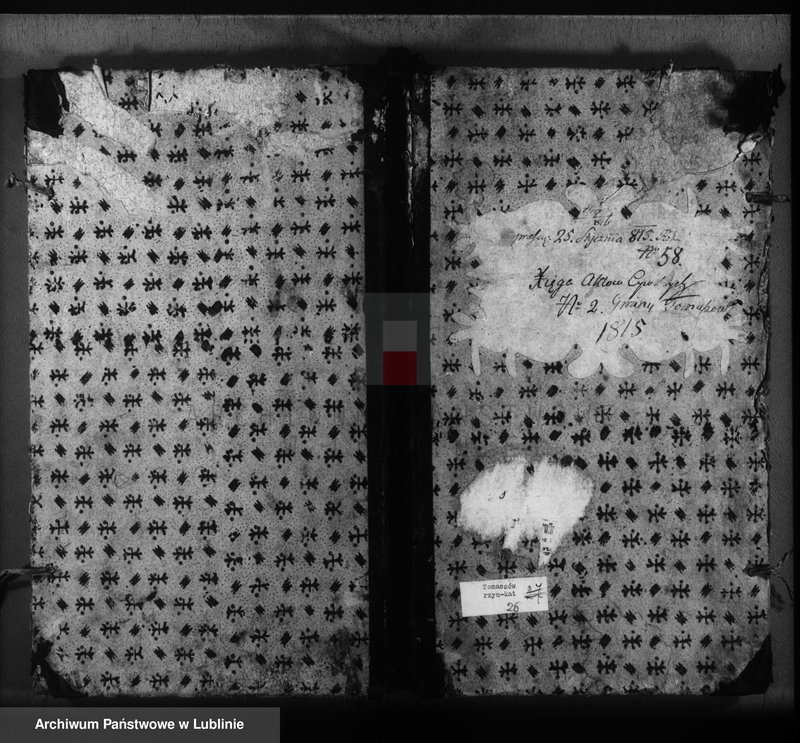 25. Stycznia 815. Rok
No 58.
Xięga Aktow Cywilnych
No 2. Gminy Tomaszow
1815
Tomaszów
rzym-kat
26
Archiwum Państwowe w Lublinie